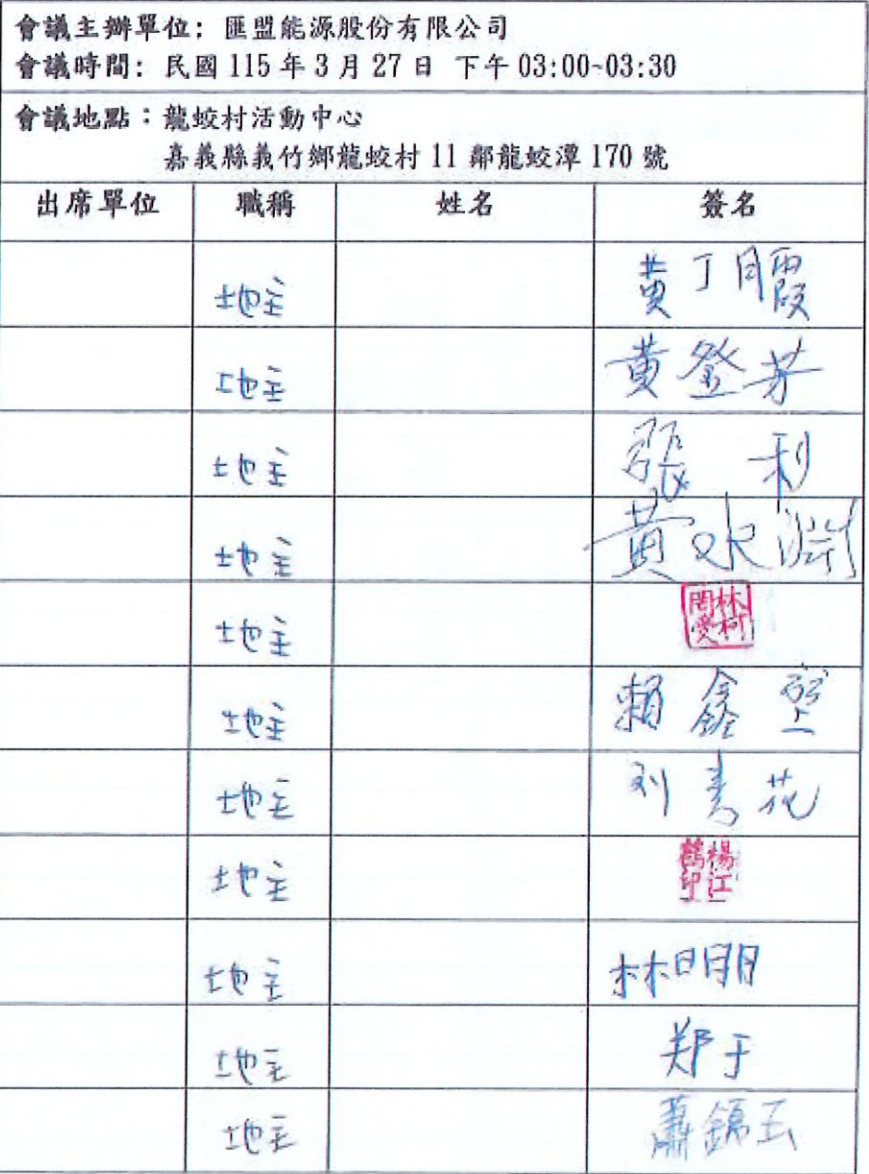 會議主辦單位: 匯盟能源股份有限公司
會議時間: 民國 115 年 3 月 27 日 下午 03:00~03:30
會議地點：龍蛟村活動中心
嘉義縣義竹鄉龍蛟村 11 鄰龍蛟潭 170 號
出席單位 職稱 姓名 簽名
地主 黃丁月霞
地主 黃登芽
地主 張 利
地主 黃水淵
地主 林柯罔受
地主 賴鑫
地主 刘秀花
地主 楊江鶴印
地主 林明月
地主 郑于
地主 蕭錦玉